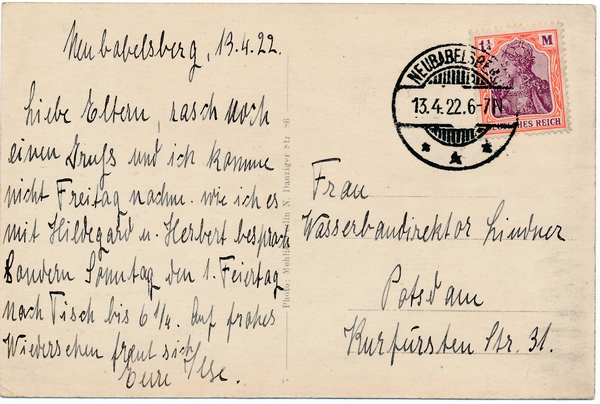 Neubabelsberg, 13.4.22.
Liebe Eltern, rasch noch
einen Gruß und ich komme
nicht Freitag nachm. wie ich es
mit Hildegard u. Herbert besprach
sondern Sonntag den 1. Feiertag
nach Tisch bis 6 1/4. Auf frohes
Wiedersehen freut sich
Eure Ilse.
Berlin N. Danziger Str. 86
NEUBABELSBERG
13.4.22.6-7N
1¼ M
DEUTSCHES REICH
Frau
Wasserbaudirektor Lindner
Potsdam
Kurfürsten Str. 31.